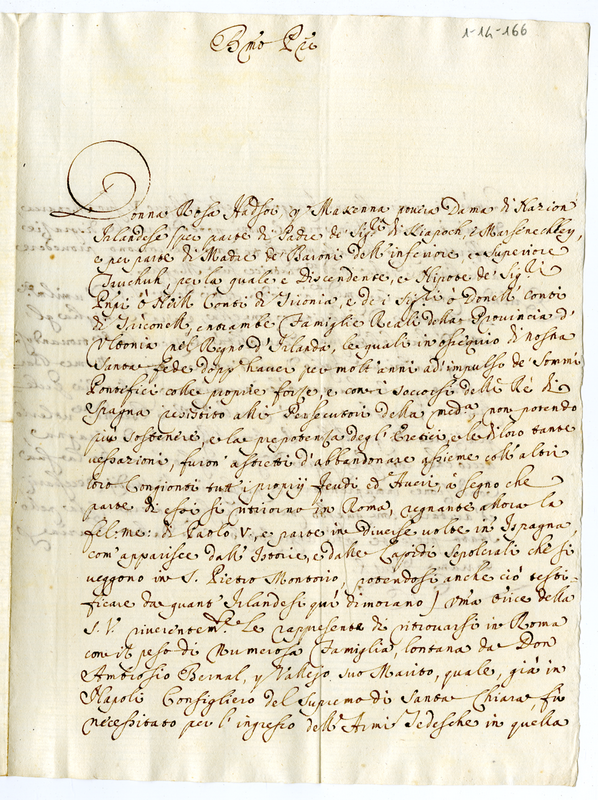 1-14-166
Bmo Pre
Donna Rosa Hadsor y Makenna povera Dama di Nazion
Irlandese (per parte di Padre de' Sigri di Kiapoch, e
e per parte di Madre de' Baroni dell' inferiore, e superiore
per la quale è Discendente, e Nipote de' Sigri
ò Neill Conti di Tironia, e de i Sigri ò Donell conti
di Tirconell, entrambe Famiglie Reali della Provincia d'
Ultonia nel Regno d'Irlanda, le quali in ossequio di nostra
Santa fede dopp' haver per molt' anni ad' impulso de' Sommi
Pontefici colle proprie forze, e con i soccorsi delli Ré di
Spagna resistito alli Persecutori della meda, non potendo
più sostenere, e la prepotenza degl' Eretici, e le di loro tante
vessazioni, furon' astretti d'abbandonare assieme coll' altri
loro Congionti tutt' i proprij feudi ed Averi, à segno che
parte di essi si ritirorno in Roma, regnante allora la
fel: me: di Paolo V., e parte in diverse volte in Ispagna
com' apparisce dall' Istorie, e dalle Lapidi Sepolcrali che si
veggono in S. Pietro Montorio, potendosi anche ciò testi-
ficare da quant' Irlandesi quì dimorano) Uma Orice della
S. V. riverentemte. Le rappresenta di ritrovarsi in Roma
con il peso di Numerosa Famiglia, lontana da Don
Ambrosio Bernal, y Vallejo suo Marito, quale, già in
Napoli Consigliero del Supremo di Santa Chiara, fù
necessitato per l' ingresso dell' Armi Tedesche in quella